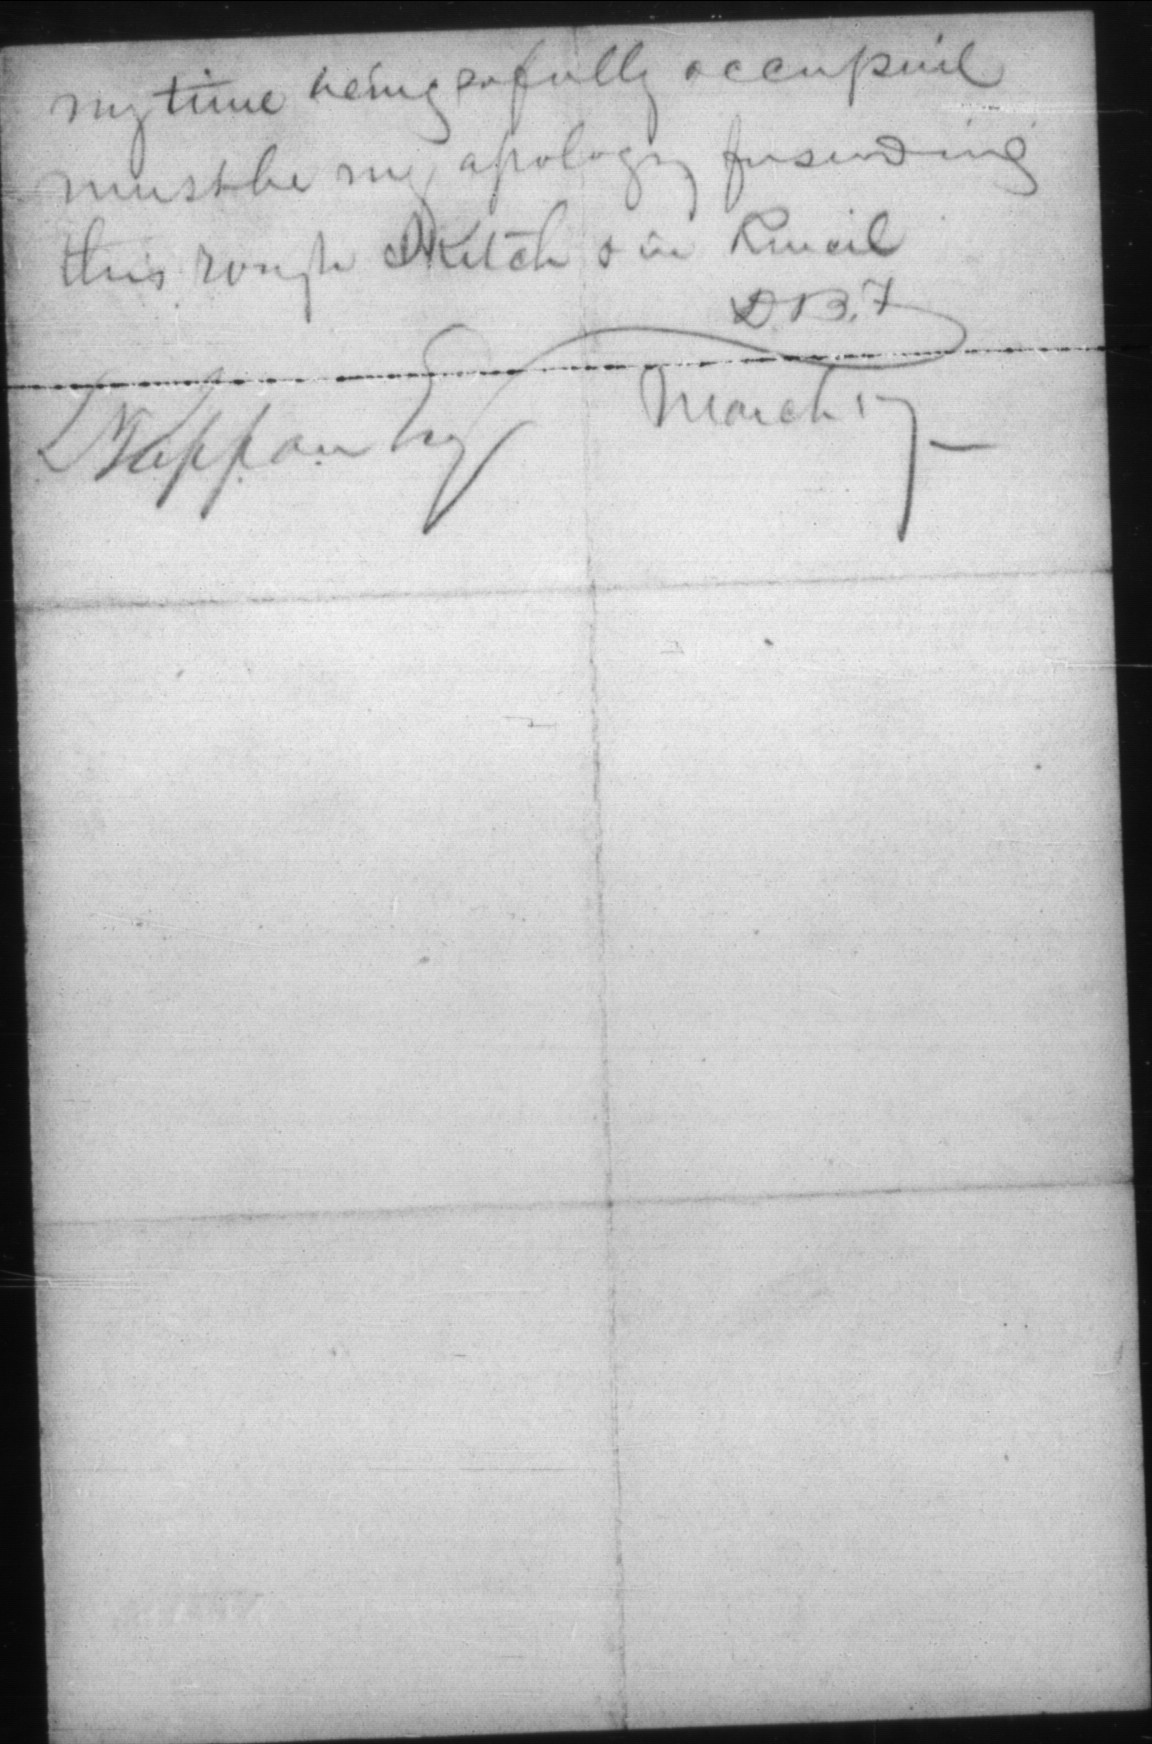 my time being so fully occupied
must be my apology for sending
this rough Sketch & in Pencil
D.B.F
L Tappan Esq March 17